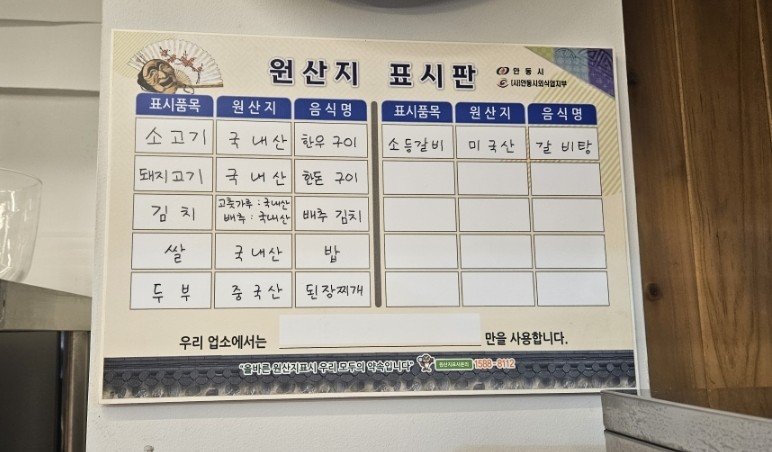 원산지 표시판
안동시
(사)안동시외식업지부
표시품목 원산지 음식명 표시품목 원산지 음식명
소고기 국내산 한우 구이 소등갈비 미국산 갈비탕
돼지고기 국내산 한돈 구이
김치 고춧가루 : 국내산 배추 김치
배추 : 국내산
쌀 국내산 밥
두부 중국산 된장찌개
우리 업소에서는 만을 사용합니다.
"올바른 원산지표시 우리 모두의 약속입니다" 원산지표시문의 1588-8112